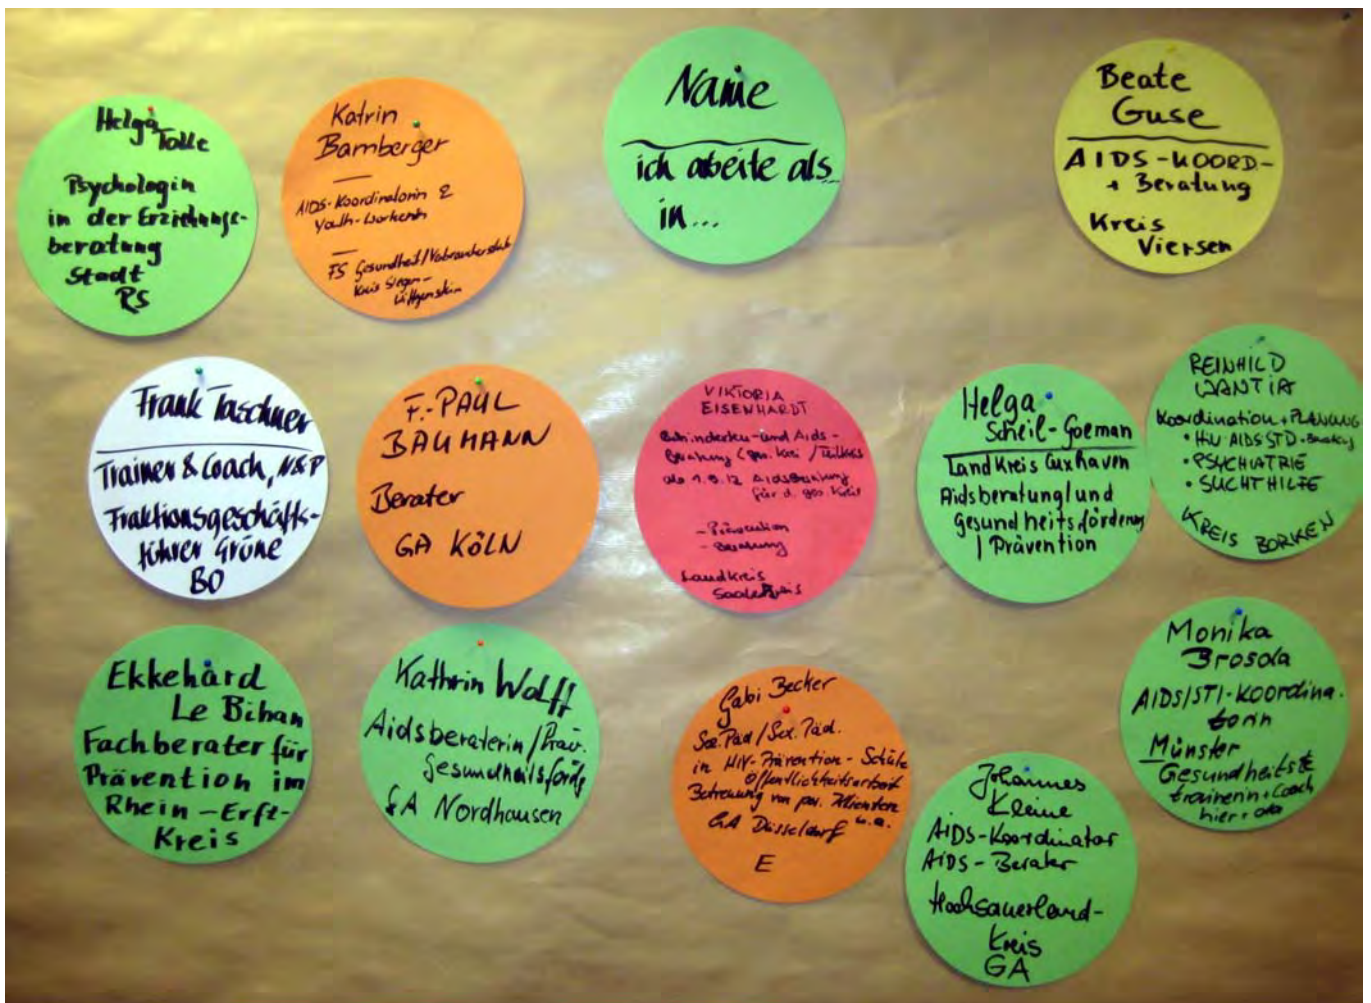 Helga
Tolle
Psychologin
in der Erziehungs-
beratung
Stadt
RS
Katrin
Bamberger
AIDS-Koordinatorin &
Youth-Workerin
FS Gesundheit/Verbraucherschutz
Kreis Siegen-
Wittgenstein
Name
ich arbeite als
in...
Beate
Guse
AIDS-KOORD-
+ Beratung
Kreis
Viersen
Frank Taschner
Trainer & Coach, N&P
Fraktionsgeschäfts-
führer Grüne
BO
F.-PAUL
BAUMANN
Berater
GA KÖLN
VIKTORIA
EISENHARDT
Behinderten- und Aids-
Beratung
ab 1.9.12 Aidsberatung
für d. ges. Kreis
- Prävention
- Beratung
Landkreis
Saalekreis
Helga
Scheil-Goeman
Landkreis Cuxhaven
Aidsberatung/und
Gesundheitsförderung
/ Prävention
REINHILD
WANTIA
Koordination + PLANUNG
• HIV-AIDS-STD-Beratung
• PSYCHIATRIE
• SUCHTHILFE
KREIS BORKEN
Ekkehard
Le Bihan
Fachberater für
Prävention im
Rhein-Erft-
Kreis
Kathrin Wolff
Aidsberaterin/Präv.
Gesundheitsfördg
GA Nordhausen
Gabi Becker
Soz.Päd/Sex.Päd.
in HIV-Prävention - Schule
Öffentlichkeitsarbeit
Betreuung von pos. Klienten
u.a.
GA Düsseldorf
E
Johannes
Kleine
AIDS-Koordinator
AIDS-Berater
Hochsauerland-
Kreis
GA
Monika
Brosda
AIDS/STI-Koordina-
torin
Münster
Gesundheits
trainerin + Coach
hier + da